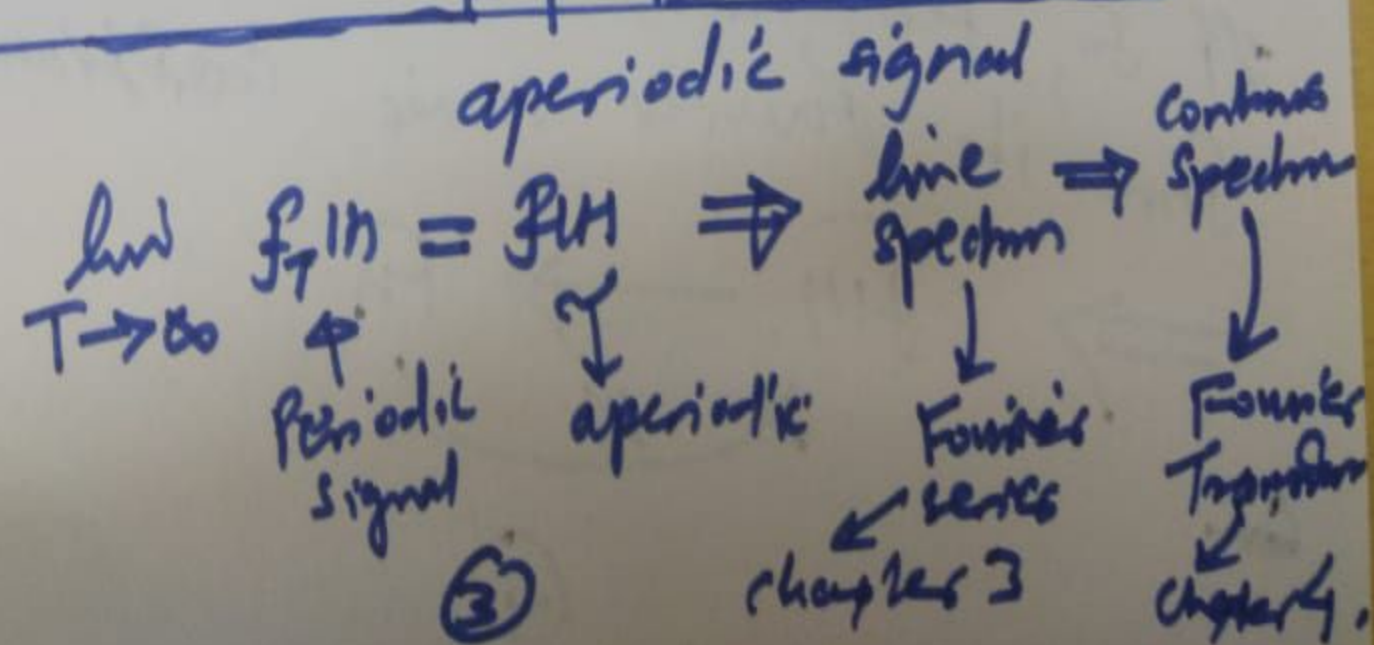 aperiodic signal
lim f_T(t) = f(t) ⇒ line spectrum ⇒ Continuous spectrum
T→∞
Periodic signal
aperiodic
Fourier series
Fourier Transform
chapter 3
chapter 4.
③